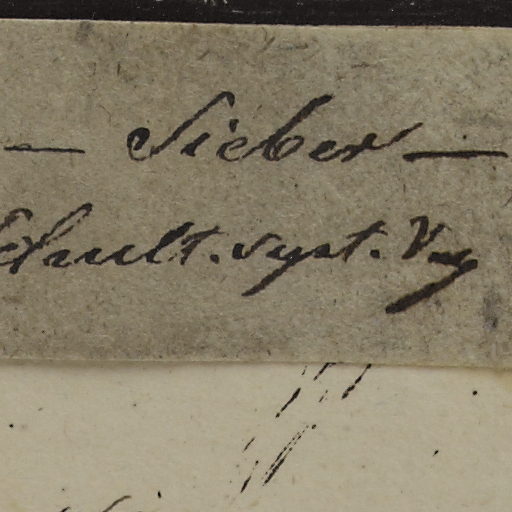 — Sieber —
Schult. syst. Veg